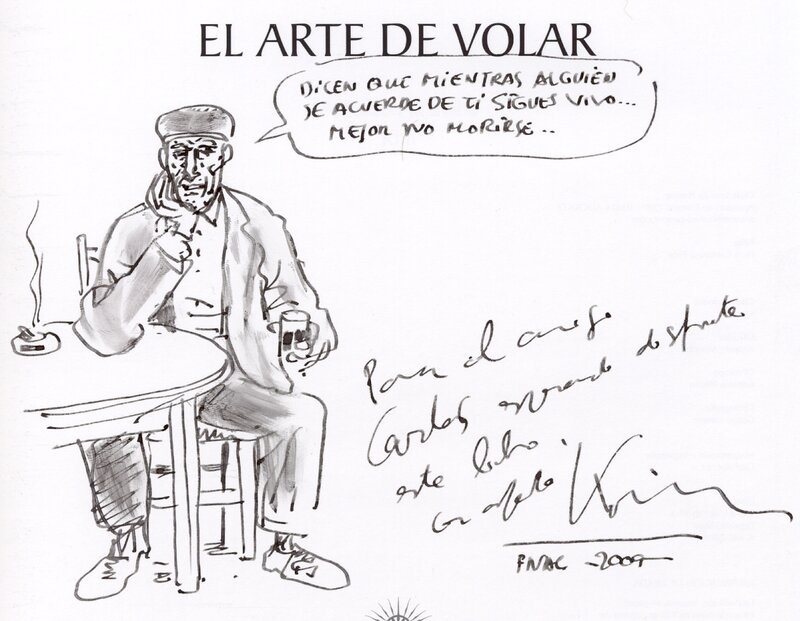 EL ARTE DE VOLAR
DICEN QUE MIENTRAS ALGUIÉN
SE ACUERDE DE TI SIGUES VIVO...
MEJOR NO MORIRSE..
Para el amigo
Carlos esperando disfrutes
este libro.
Con afecto Kim
FNAC -2009-